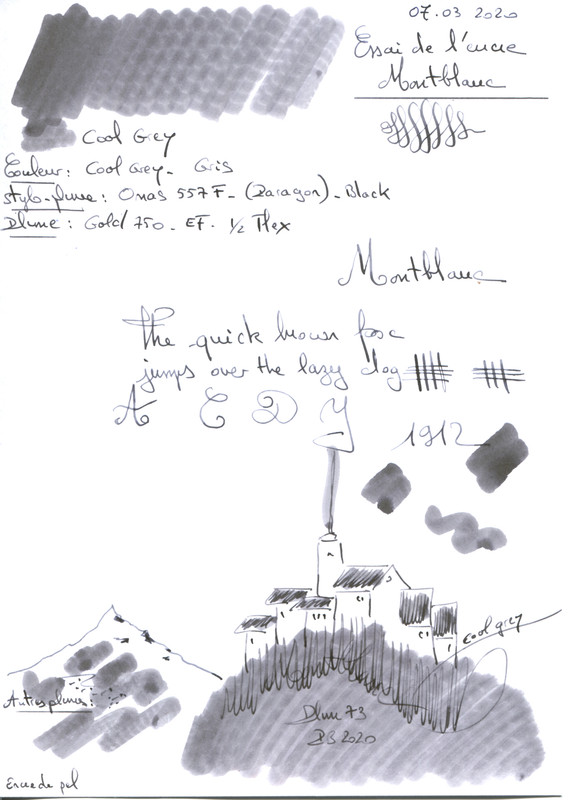 07.03 2020
Essai de l'encre
Montblanc
Cool Grey
Couleur: Cool Grey - Gris
stylo-plume: Omas 557F - (Paragon) - Black
Plume: Gold 750 - EF. 1/2 Flex
Montblanc
The quick brown fox
jumps over the lazy dog
A C D Y
1912
cool grey
Autres plumes:
Plum 73
2020